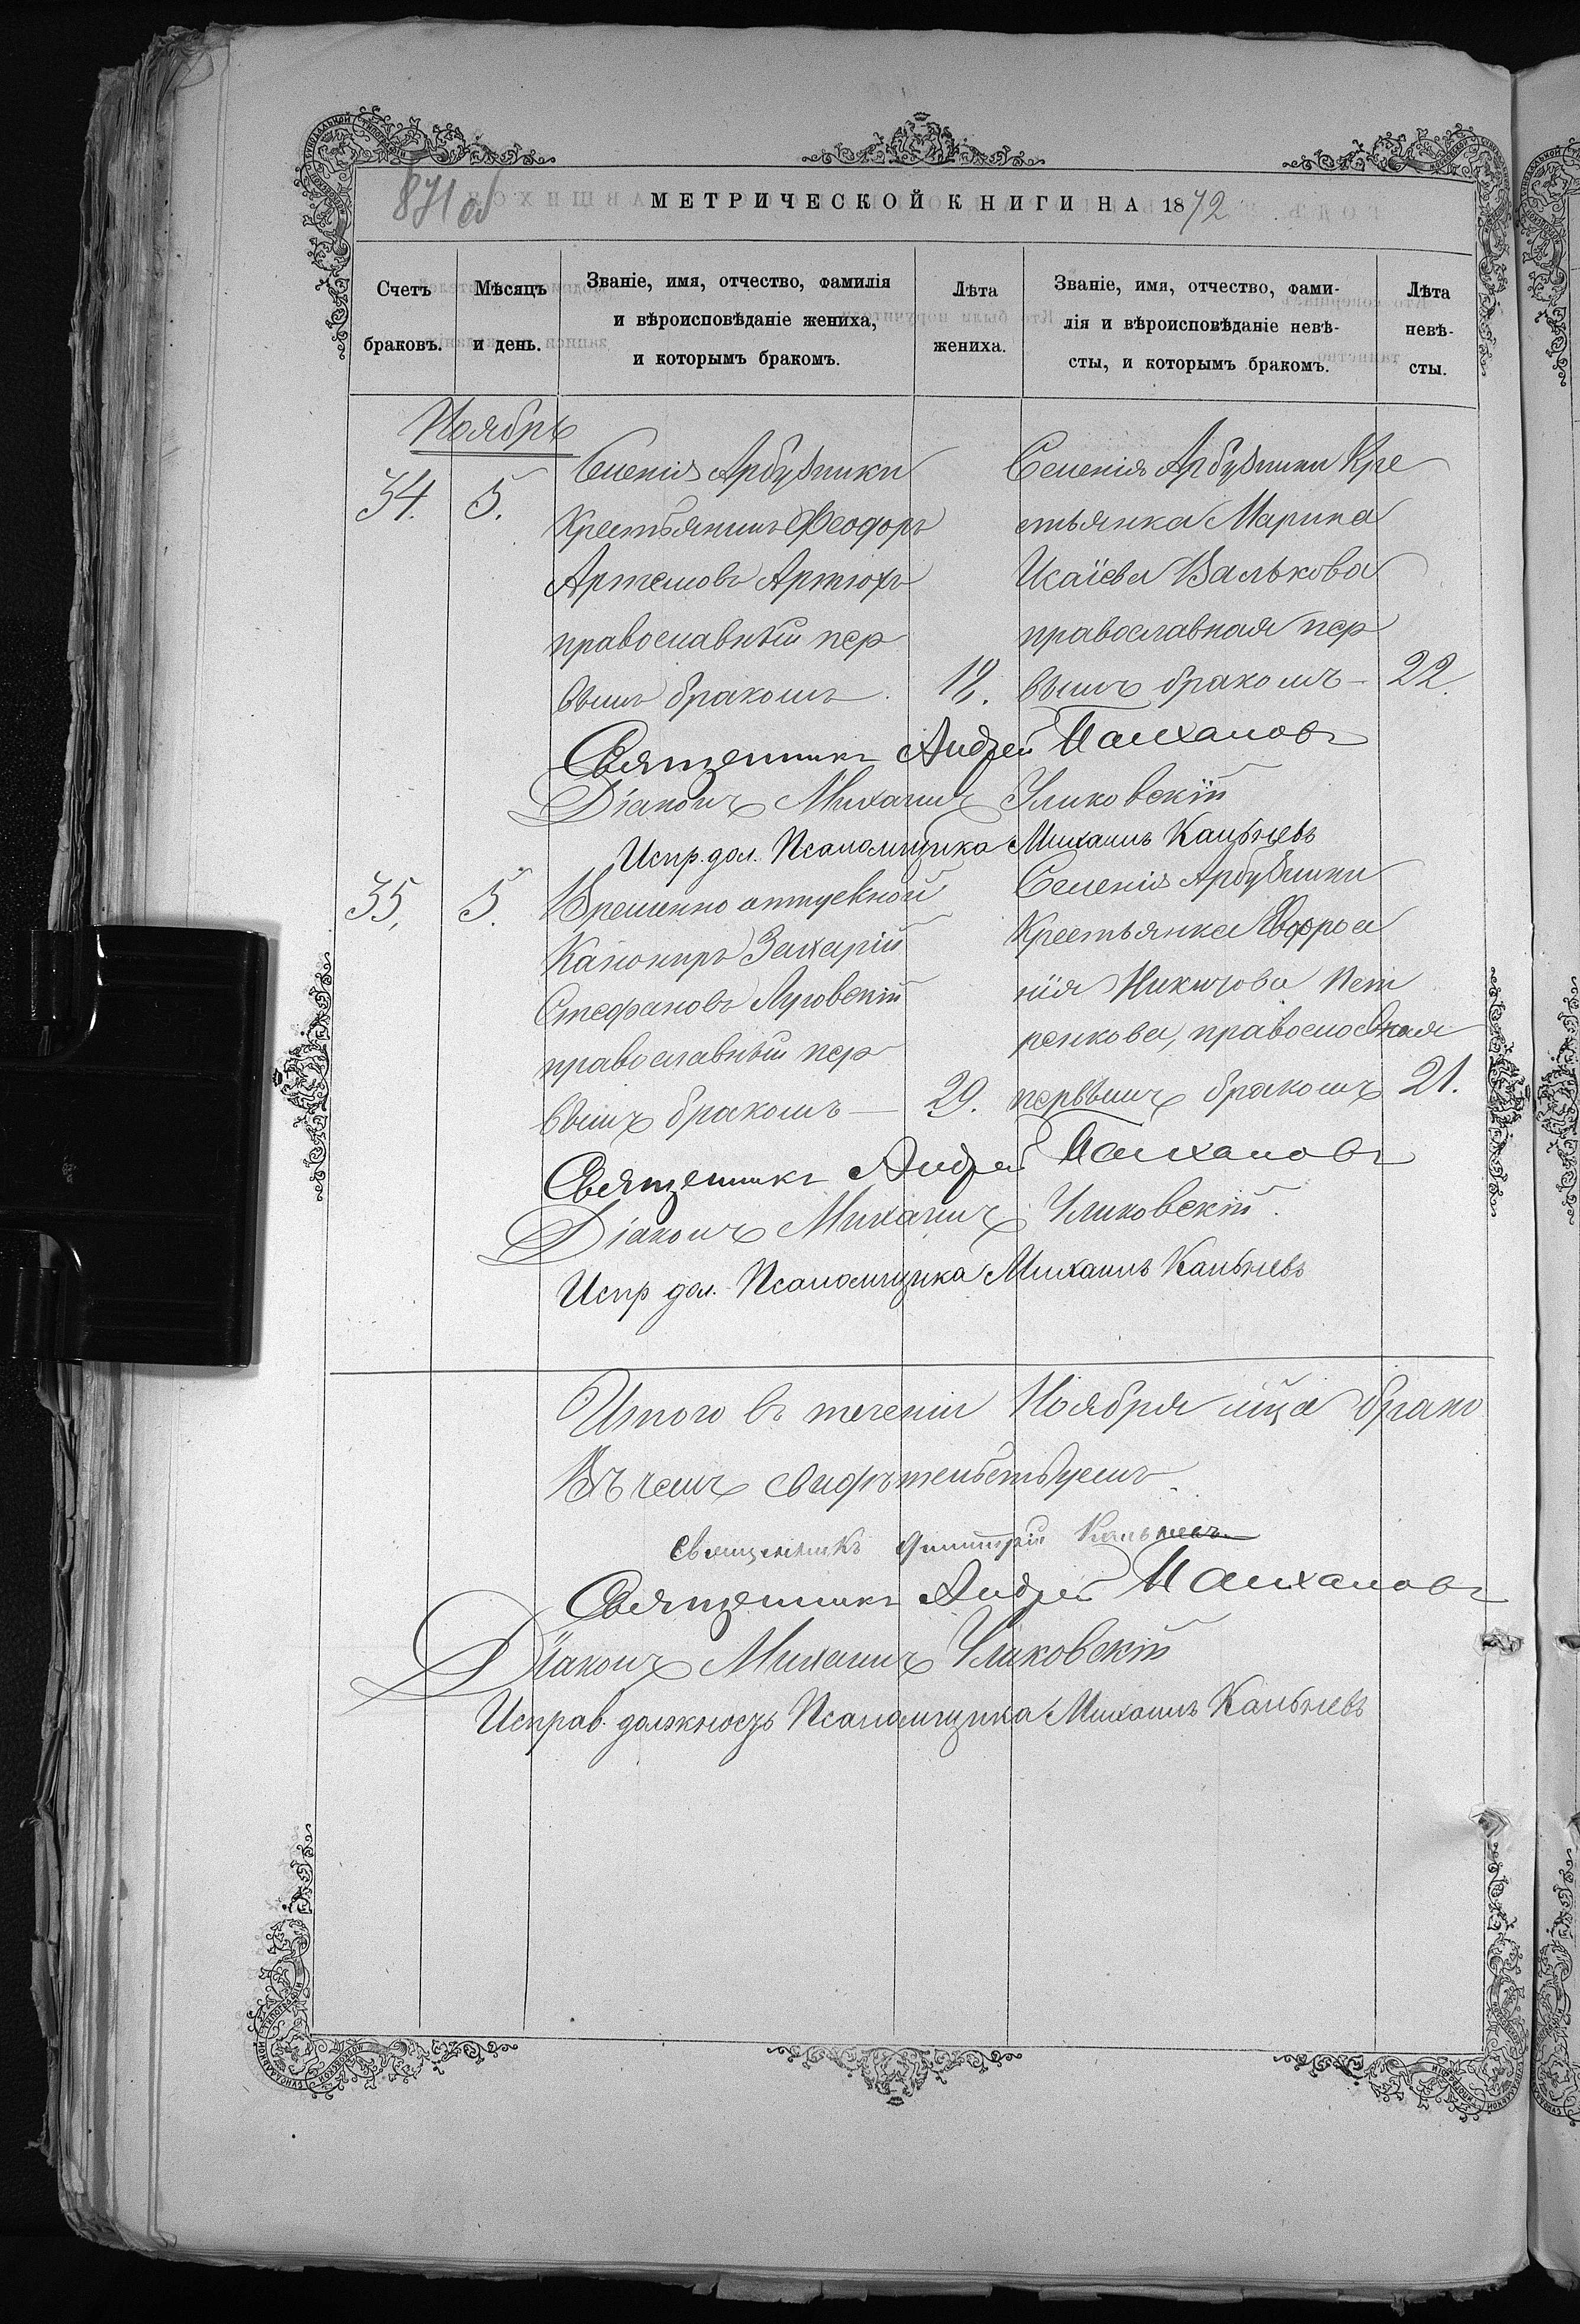 871 об
МЕТРИЧЕСКОЙ КНИГИ НА 1872
Счетъ браковъ.
Мѣсяцъ и день.
Званіе, имя, отчество, фамилія
и вѣроисповѣданіе жениха,
и которымъ бракомъ.
Лѣта жениха.
Званіе, имя, отчество, фами-
лія и вѣроисповѣданіе невѣ-
сты, и которымъ бракомъ.
Лѣта невѣ-
сты.
Ноябрь
34. 5.
Селенія Арбузинки
Крестьянинъ Феодоръ
Артемовъ Артюхъ
православный пер
вымъ бракомъ
Селенія Арбузинки Кре
стьянка Марина
Исаіева Валькова
православная пер
вымъ бракомъ – 22.
Священникъ Андрей
Діаконъ Михаилъ
Испр. дол. Псаломщика Михаилъ
35. 5.
Временно отпускной
Канониръ Захарій
Стефановъ Луговскій
православный пер
вымъ бракомъ — 29.
Селенія Арбузинки
Крестьянка Евфроси
нія Никитова Пет
ренкова, православная
первымъ бракомъ 21.
Священникъ Андрей
Діаконъ Михаилъ
Испр дол. Псаломщика Михаилъ
Итого въ теченіи Ноября мца брако
Въ чемъ свидѣтельствуемъ
Священникъ Димитрій
Священникъ Андрей
Діаконъ Михаилъ
Исправ. должность Псаломщика Михаилъ